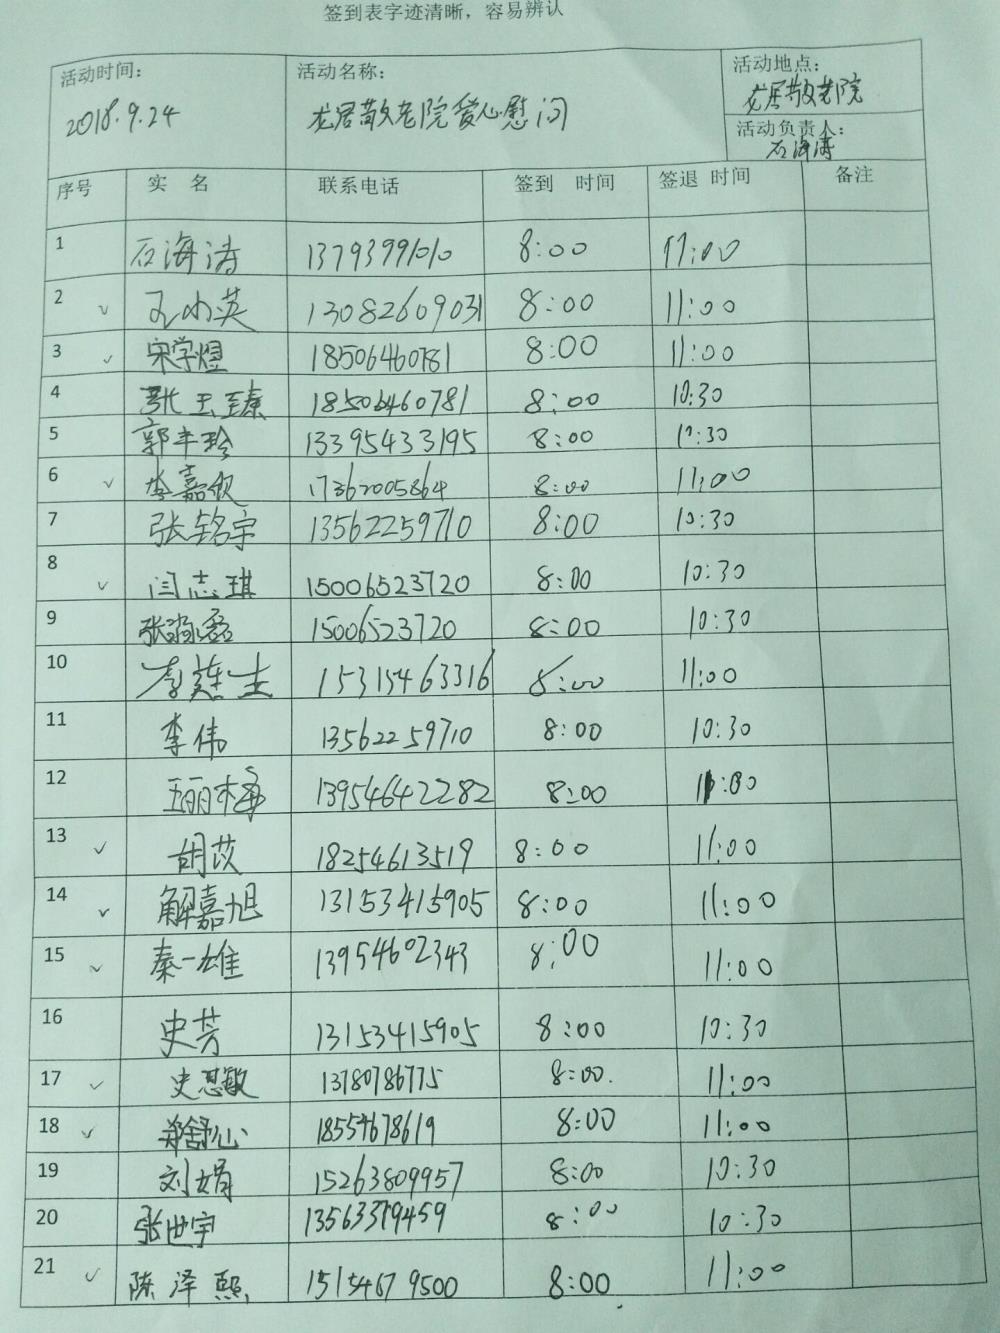 签到表字迹清晰，容易辨认
活动时间： 活动名称： 活动地点：
2018.9.24 龙居敬老院爱心慰问 龙居敬老院
活动负责人：
石海涛
序号 实 名 联系电话 签到 时间 签退 时间 备注
1 石海涛 13793991010 8:00 11:00
2 ✓ 孔小英 13082609031 8:00 11:00
3 ✓ 宋学煜 18506460781 8:00 11:00
4 张玉臻 18506460781 8:00 10:30
5 郭丰玲 13395433195 8:00 10:30
6 ✓ 李嘉欣 17362005864 8:00 11:00
7 张铭宇 13562259710 8:00 10:30
8 ✓ 闫志琪 15006523720 8:00 10:30
9 张 磊 15006523720 8:00 10:30
10 李莲生 15315463316 8:00 11:00
11 李伟 13562259710 8:00 10:30
12 王丽梅 13954642282 8:00 11:00
13 ✓ 胡苡 18254613519 8:00 11:00
14 ✓ 解嘉旭 13153415905 8:00 11:00
15 ✓ 秦一雄 13954602343 8:00 11:00
16 史芳 13153415905 8:00 10:30
17 ✓ 史思敏 13780786775 8:00. 11:00
18 ✓ 郑舒心 18554678619 8:00 11:00
19 刘娟 15263809957 8:00 10:30
20 张世宇 13563379459 8:00 10:30
21 ✓ 陈泽熙 15154679500 8:00 11:00